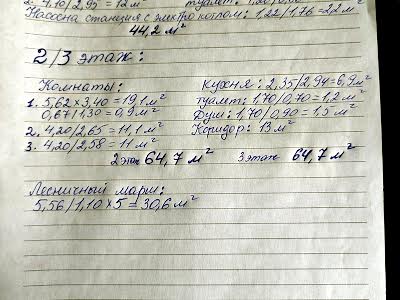 2. 4,10/2,95 = 12 м²
Насосна станция с электро котлом: 1,22/1,76 = 2,2 м²
44,2 м²
2/3 этаж:
Комнаты:
кухня: 2,35/2,94 = 6,9 м²
1. 5,62 × 3,40 = 19,1 м²
туалет: 1,70/0,70 = 1,2 м²
0,67/1,30 = 0,9 м²
Душ: 1,70/0,90 = 1,5 м²
2. 4,20/2,65 = 11,1 м²
Коридор: 13 м²
3. 4,20/2,58 = 11 м²
2 этаж 64,7 м² 3 этаж 64,7 м²
Лесничный марш:
5,56/1,10 × 5 = 30,6 м²